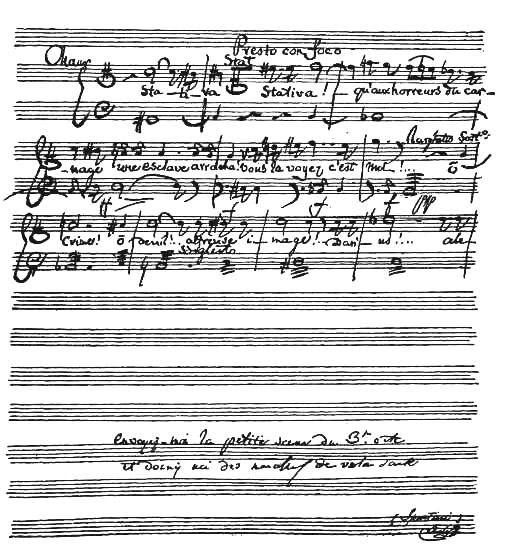 Presto con foco
Stat
Sta - ti - va Stativa ! qu'aux horreurs du car-
-nage une esclave arracha! vous la voyez c'est moi !... ô
crimes! ô deuil!.. affreuse i - mage!.. Dari - us!...
envoyez-moi la petite scene du 3.e acte
et donnez moi des nouvelles de votre santé